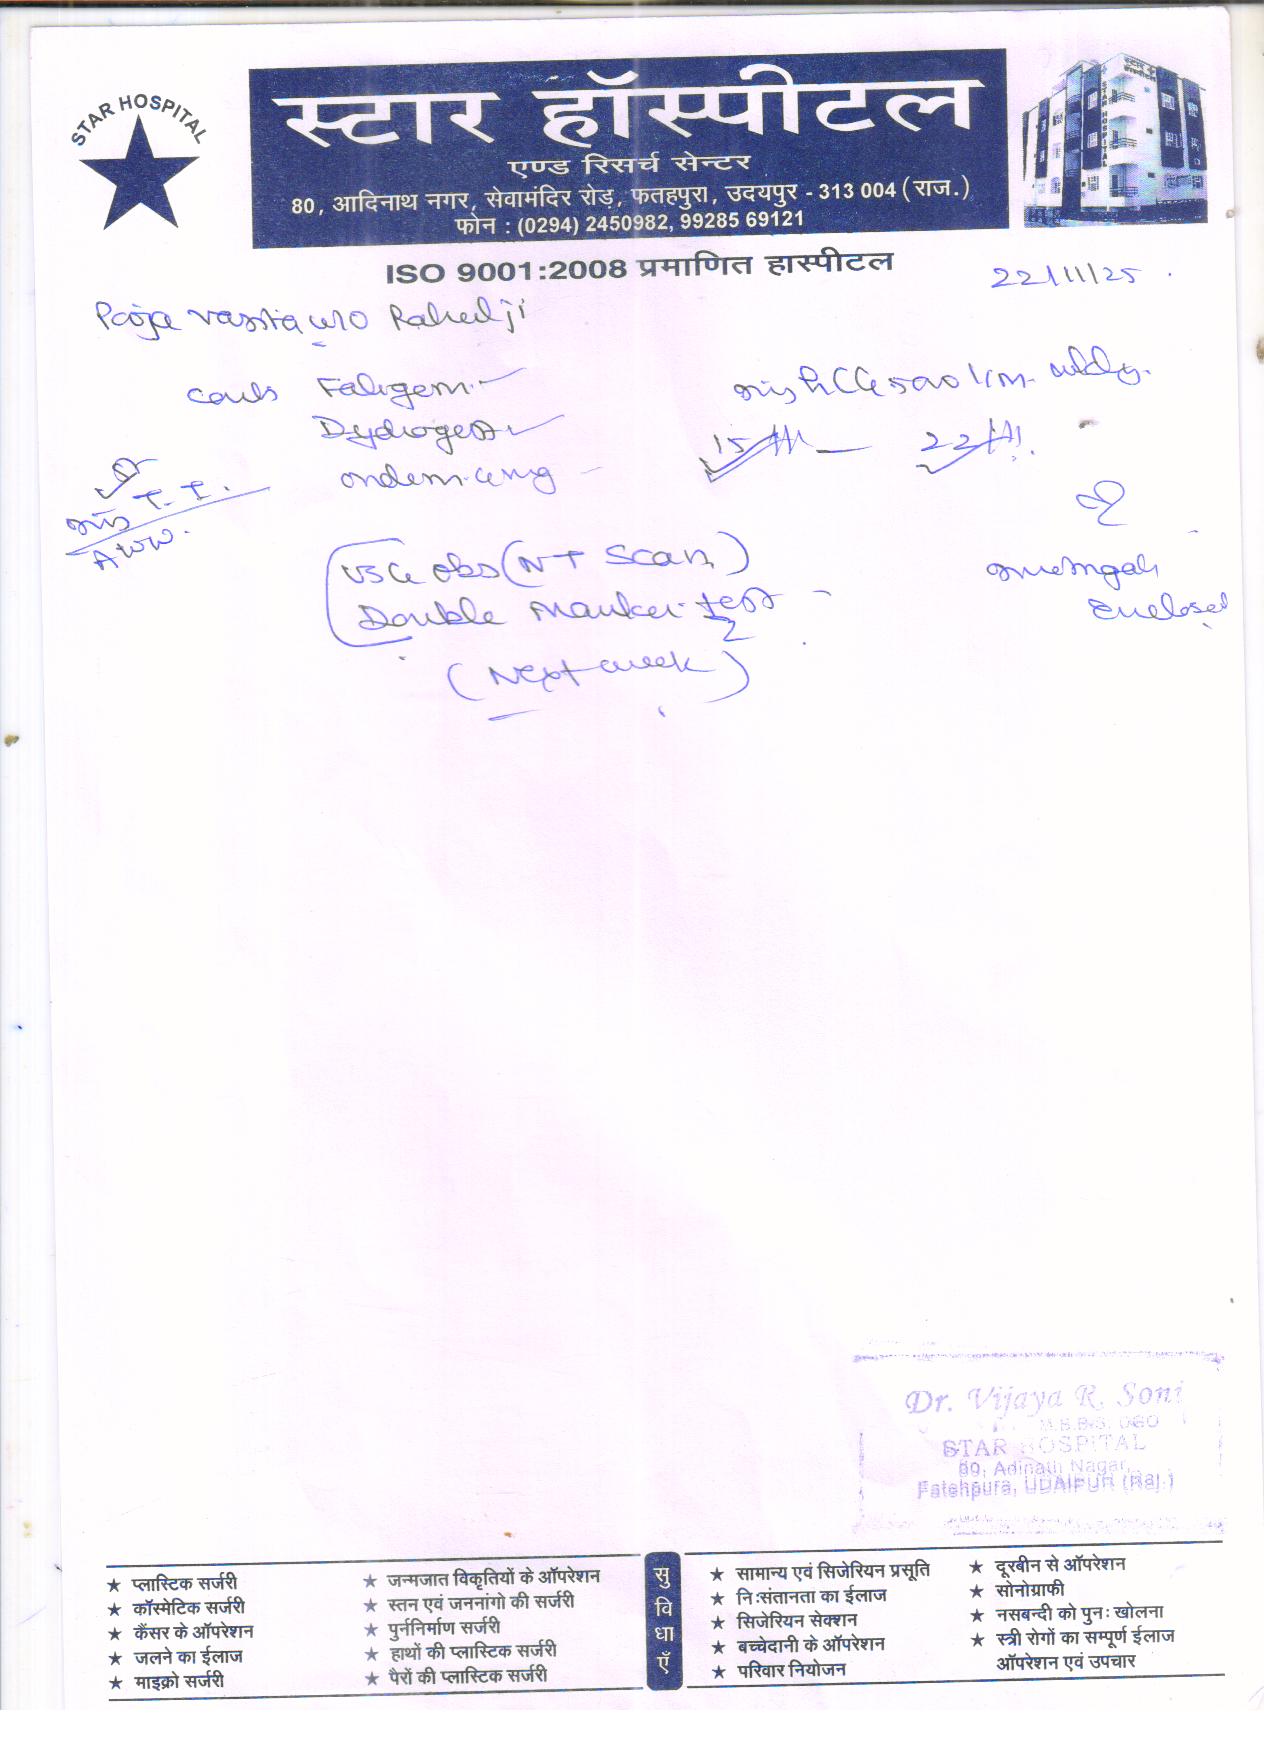 STAR HOSPITAL
स्टार हॉस्पीटल
एण्ड रिसर्च सेन्टर
80, आदिनाथ नगर, सेवामंदिर रोड़, फतहपुरा, उदयपुर - 313 004 (राज.)
फोन : (0294) 2450982, 99285 69121
ISO 9001:2008 प्रमाणित हास्पीटल
22/11/25
w/o
15/11 22/11
T.T.
USG obs (NT Scan)
Double Marker test
(Next week)
Enclosed
Dr. Vijaya R. Soni
M.B.B.S. DGO
STAR HOSPITAL
80, Adinath Nagar,
Fatehpura, UDAIPUR (Raj.)
सुविधाएँ
★ प्लास्टिक सर्जरी
★ कॉस्मेटिक सर्जरी
★ कैंसर के ऑपरेशन
★ जलने का ईलाज
★ माइक्रो सर्जरी
★ जन्मजात विकृतियों के ऑपरेशन
★ स्तन एवं जननांगो की सर्जरी
★ पुर्ननिर्माण सर्जरी
★ हाथों की प्लास्टिक सर्जरी
★ पैरों की प्लास्टिक सर्जरी
★ सामान्य एवं सिजेरियन प्रसूति
★ निःसंतानता का ईलाज
★ सिजेरियन सेक्शन
★ बच्चेदानी के ऑपरेशन
★ परिवार नियोजन
★ दूरबीन से ऑपरेशन
★ सोनोग्राफी
★ नसबन्दी को पुनः खोलना
★ स्त्री रोगों का सम्पूर्ण ईलाज
ऑपरेशन एवं उपचार